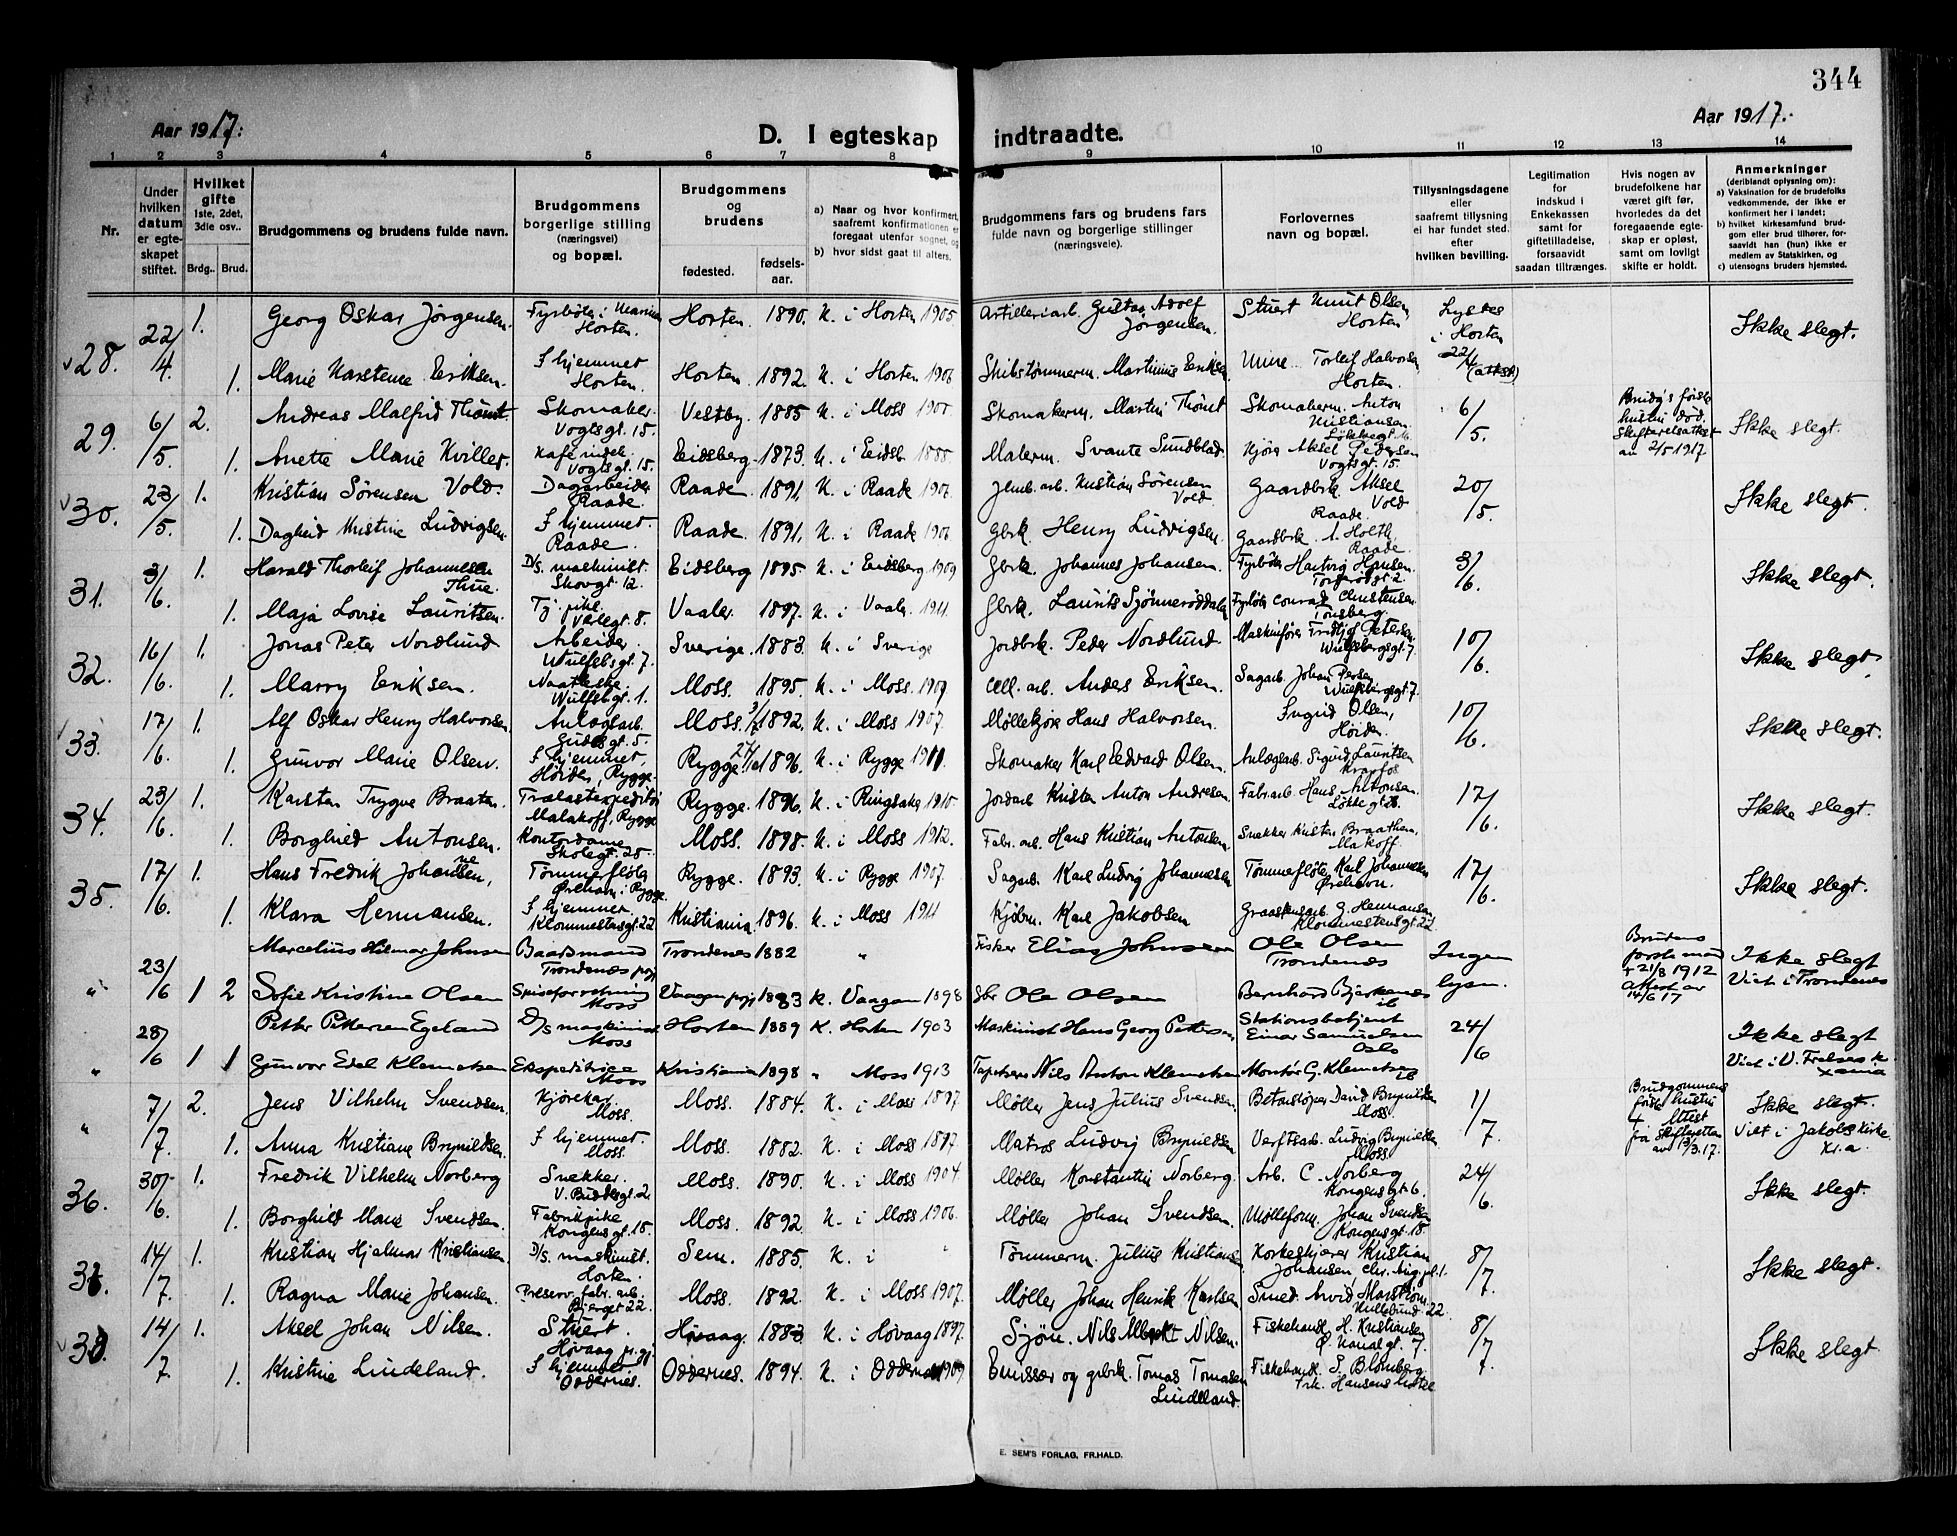 344
Aar 1917.
Aar 1917.
D. I egteskap indtraadte.
1 2 3 4 5 6 7 8 9 10 11 12 13 14
Nr.
Under hvilken datum er egteskapet stiftet.
Hvilket gifte 1ste, 2det, 3die osv..
Brdg.. Brud.
Brudgommens og brudens fulde navn.
Brudgommens borgerlige stilling (næringsvei) og bopæl.
Brudgommens og brudens
fødested.
fødsels-aar.
a) Naar og hvor konfirmert, saafremt konfirmationen er foregaat utenfor sognet, og
b) hvor sidst gaat til alters.
Brudgommens fars og brudens fars fulde navn og borgerlige stillinger (næringsveie).
Forlovernes navn og bopæl.
Tillysningsdagene eller saafremt tillysning ei har fundet sted. efter hvilken bevilling.
Legitimation for indskud i Enkekassen samt for giftetilladelse, forsaavidt saadan tiltrænges.
Hvis nogen av brudefolkene har været gift før, hvorledes da det foregaaende egteskap er opløst, samt om lovligt skifte er holdt.
Anmerkninger (deriblandt oplysning om):
a) Vaksination for de brudefolks vedkommende, der ikke er konfirmert her i landet;
b) hvilket kirkesamfund brudgom eller brud tilhører, forsaavidt han (hun) ikke er medlem av Statskirken, og
c) utensogns bruders hjemsted.
28. 22/4. 1. Georg Oskar Jørgensen. Fyrbøter i Marinen Horten. Horten. 1890. K. i Horten 1905. Artilleriarb. Gustav Adolf Jørgensen. Stuert Knut Olsen Horten Lystes i Horten 22/4 (attest) Ikke slegt.
1. Marie Eriksen. I hjemmet Horten. Horten. 1892. K. i Horten 1906 Skibstømmerm. Martinius Eriksen Torleif Halvorsen, Horten.
29. 6/5. 2. Andreas Malfrid Thømt. Skomaker. Vogtsgt. 15. Vestby. 1885 K. i Moss Skomakerm. Martin Thømt Skomakerm. Anton Kristiansen 6/5. Brudg's første hustru død. Skifteretsattest av 2/5 1917 Ikke slegt.
1. Anette Marie Kviller. Kaféindeh. Vogtsgt. 15. Eidsberg. 1873. K. i Eidsb. 1888 Malerm. Svante Sundblad. Aksel Pedersen Vogtsgt. 15.
30. 23/5 1. Kristian Sørensen Vold. Dagarbeider Raade. Raade. 1891. K. i Raade Jernb. arb. Kristian Sørensen Vold. Gaardbrk. Aksel Vold Raade. 20/5. Ikke slegt.
1. Dagheid Kristine Ludvigsen. I hjemmet. Raade. Raade. 1891. K. i Raade 1906 Gbrk Henry Ludvigsen. Gaardbrk. A. Holth Raade.
31. 3/6. 1. Harald Thorleif Johannesen Thue. D/s. maskinist. Skovgt. 12. Eidsberg 1895. K. i Eidsberg 1909 Gbrk. Johannes Johansen. Fyrbøter Hartvig Hansen 3/6. Ikke slegt.
1. Maja Lovise Lauritsen. Tj. pike. Verlegt. 8. Vaaler. 1897. K. i Vaaler 1911 Gbrk. Laurits Fyrbøter Conrad Christensen Tønsberg.
32. 16/6. 1. Jonas Peter Nordlund Arbeider Wulfsbgt. 7. Sverige. 1883. K. i Sverige Jordbrk. Peder Nordlund Maskinfører Fridtjof Petersen Wulfsbergsgt. 7. 10/6. Ikke slegt.
1. Marry Eriksen. Wulfsbgt. 1. Moss. 1895. K. i Moss. 1909 Cell. arb. Anders Eriksen. Sagarb. Johan Persen Wulfsbergsgt. 7.
33. 17/6. 1. Alf Oskar Henry Halvorsen Anlægsarb. Gudesgt. 5. Moss. 1892. K. i Moss 1907. Møllekjøre Hans Halvorsen. Ingrid Olsen, Høiden. 10/6. Ikke slegt.
1. Gunvor Marie Olsen. I hjemmet, Høiden, Rygge. Rygge. 1896. K. i Rygge 1911 Skomaker Karl Edvard Olsen. Anlægsarb. Sigurd Lauritsen Krapfos
34. 23/6. 1. Karsten Trygve Braaten. Trælastexpeditør Malakoff, Rygge Rygge. 1896. K. i Ringsaker 1910. Jordarb Kristen Anton Andresen. Fabr.arb. Hans Antonsen. 17/6. Ikke slegt.
1. Borghild Antonsen. Kontordame Skolegt. 25. Moss. 1898. K. i Moss 1912. Fabr. arb. Hans Kristian Antonsen Snekker Kristen Braathen. Malakoff.
35. 17/6. 1. Hans Fredrik Johannesen, Tømmerfløter Ørehavn i Rygge. Rygge. 1893. K. i Rygge 1907. Sagarb. Karl Ludvig Johannesen Tømmerfløter Karl Johannesen Ørehavn. 17/6. Ikke slegt.
1. Klara Hermansen. I hjemmet. Klommestensgt. 22 Kristiania. 1896. K. i Moss 1911 Kjøbm. Karl Jakobsen Graastensarb. G. Hermansen Klommestensgt. 22.
" 23/6 1 Marcelius Hilmar Johnsen Baadsmand Trondenes pgj Trondenes 1882 " Fisker Elias Johnsen Ole Olsen Trondenes Ingen lysn. Brudens første mand + 21/8 1912 Attest av 14/6 17 Ikke slegt Viet i Trondenes
2 Sofie Kristine Olsen Spiseforretning Moss Vaagan pgj 1883 K. Vaagan 1898 Gbr Ole Olsen Bernhard Bjerkenes ib
" 28/6 1 Petter Pettersen Egeland D/s maskinist Moss Horten 1889 K. Horten 1903 Maskinist Hans Georg Pettersen Stationsbetjent Einar Samuelsen Oslo 24/6 Ikke slegt Viet i V. Frelsers k. Xania
1 Gunvor Edel Klemetsen Ekspeditrice Moss Kristiania 1898 " Moss 1913 Tapetserer Nils Anton Klemetsen Montør G. Klemetsen ib
" 7/7 2. Jens Vilhelm Svendsen. Kjørekar Moss. Moss. 1884. K. i Moss 1897 Møller Jens Julius Svendsen. Betonstøper David Brynildsen Moss. 1/7. Brudgommens første hustru + Attest fra skifteretten av 13/3.17. Ikke slegt. Viet i Jakobs Kirke Kr.a.
1. Anna Kristiane Brynildsen. I hjemmet. Moss. Moss. 1882. K. i Moss 1897. Matros Ludvig Brynildsen Verftsarb. Ludvig Brynildsen Moss.
36. 30/6. 1. Fredrik Vilhelm Norberg Snekker. V. Buddesgt. 2. Moss. 1890. K. i Moss 1904. Møller Konstantin Norberg. Arb. C. Norberg Kongensgt. 6. 24/6. Ikke slegt.
1. Borghild Marie Svendsen. Fabrikpike Kongensgt. 15. Moss. 1892 K. i Moss 1906. Møller Johan Svendsen. Mølleform. Johan Svendsen Kongensgt. 18.
37. 14/7. 1. Kristian Hjalmar Kristiansen D/s. maskinist. Horten. Sem. 1885. K. i " Tømmerm. Julius Kristiansen Korkeskjærer Kristian Johansen Chr. Aug. pl. 1. 8/7. Ikke slegt.
1. Ragna Marie Johansen. Preserv. fabr. arb. Bjerget 22. Moss. 1892. K. i Moss 1907. Møller Johan Henrik Karlsen Smed. Arvid Marstrøm 22.
38. 14/7. 1. Aksel Johan Nilsen. Stuert. Høvaag pr.gj. Høvaag. 1883 K. i Høvaag 1897. Sjøm. Nils Albrekt Nilsen. Fiskehandl. H. Kristiansen Ø. Kanalgt. 7. 8/7. Ikke slegt.
1. Kristine Lindeland. I hjemmet Oddernes. Oddernes. 1894. K. i Oddernes 1909. Emissær og gbrk. Tomas Tomasen Lindeland. Fiskehandl. S. Blomberg Frk. Hansens hotel
E. SEM'S FORLAG, FR.HALD.